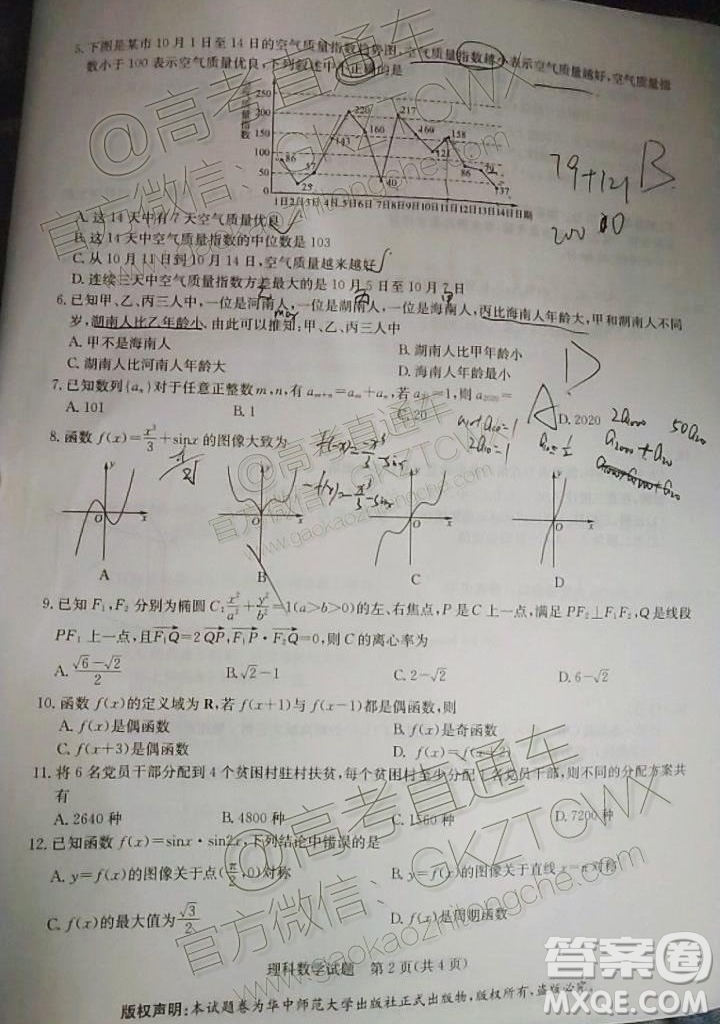 5.下图是某市10月1日至14日的空气质量指数趋势图,空气质量指数越小表示空气质量越好,空气质量指
数小于100表示空气质量优良,下列叙述中不正确的是
空气质量指数
250
200
150
100
50
0
86 25 57 143 220 160 40 217 160 121 158 86 79 37
1日2日3日4日5日6日7日8日9日10日11日12日13日14日 日期
79+121 B
200
A.这14天中有7天空气质量优良
B.这14天中空气质量指数的中位数是103
C.从10月11日到10月14日,空气质量越来越好
D.连续三天中空气质量指数方差最大的是10月5日至10月7日
6.已知甲、乙、丙三人中,一位是河南人,一位是湖南人,一位是海南人,丙比海南人年龄大,甲和湖南人不同
岁,湖南人比乙年龄小.由此可以推知:甲、乙、丙三人中
A.甲不是海南人 B.湖南人比甲年龄小
C.湖南人比河南人年龄大 D.海南人年龄最小
D
7.已知数列{aₙ}对于任意正整数m,n,有aₘ₊ₙ=aₘ+aₙ,若a₂₀=1,则a₂₀₂₀=
A.101 B.1 C.20 D.2020
A
8.函数f(x)=x³/3+sinx的图像大致为
y x O y x O y x O y x O
A B C D
9.已知F₁,F₂分别为椭圆C:x²/a²+y²/b²=1(a>b>0)的左、右焦点,P是C上一点,满足PF₂⊥F₁F₂,Q是线段
PF₁上一点,且F₁Q=2QP,F₁P·F₂Q=0,则C的离心率为
A.(√6-√2)/2 B.√2-1 C.2-√2 D.6-√2
10.函数f(x)的定义域为R,若f(x+1)与f(x-1)都是偶函数,则
A.f(x)是偶函数 B.f(x)是奇函数
C.f(x+3)是偶函数 D.f(x)=f(x+2)
11.将6名党员干部分配到4个贫困村驻村扶贫,每个贫困村至少分配1名党员干部,则不同的分配方案共
有
A.2640种 B.4800种 C.1560种 D.7200种
12.已知函数f(x)=sinx·sin2x,下列结论中错误的是
A.y=f(x)的图像关于点(π/2,0)对称 B.y=f(x)的图像关于直线x=π对称
C.f(x)的最大值为√3/2 D.f(x)是周期函数
理科数学试题 第2页(共4页)
版权声明:本试题卷为华中师范大学出版社正式出版物,版权所有,盗版必究。
@高考直通车
官方微信:GKZTCWX
www.gaokaozhitongche.com
@高考直通车
官方微信:GKZTCWX
www.gaokaozhitongche.com
@高考直通车
官方微信:GKZTCWX
www.gaokaozhitongche.com
答案圈
MXQE.COM